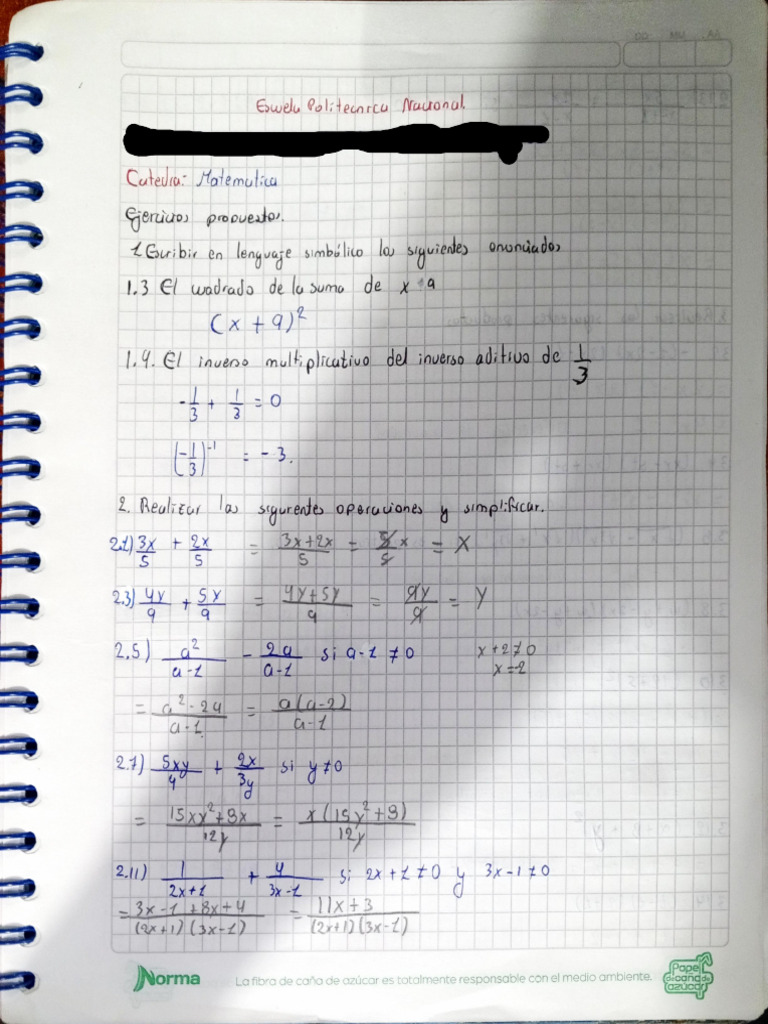 Escuela Politecnica Nacional.
Catedra: Matematica
Ejercicios propuestos.
1. Escribir en lenguaje simbólico los siguientes enunciados
1.3 El cuadrado de la suma de x + 9
(x + 9)²
1.4. El inverso multiplicativo del inverso aditivo de 1/3
-1/3 + 1/3 = 0
(-1/3)⁻¹ = -3.
2. Realizar las siguientes operaciones y simplificar.
2.1) 3x/5 + 2x/5 = (3x+2x)/5 = 5x/5 = X
2.3) 4y/9 + 5y/9 = (4y+5y)/9 = 9y/9 = Y
2.5) a²/(a-1) - 2a/(a-1) si a-1 ≠ 0 x+2≠0
x=-2
= (a²-2a)/(a-1) = a(a-2)/(a-1)
2.7) 5xy/4 + 2x/3y si y≠0
= (15xy²+8x)/12y = x(15y²+8)/12y
2.11) 1/(2x+1) + 4/(3x-1) si 2x+1≠0 y 3x-1≠0
= (3x-1+8x+4)/(2x+1)(3x-1) = (11x+3)/(2x+1)(3x-1)
Norma La fibra de caña de azúcar es totalmente responsable con el medio ambiente. Papel de caña de azúcar